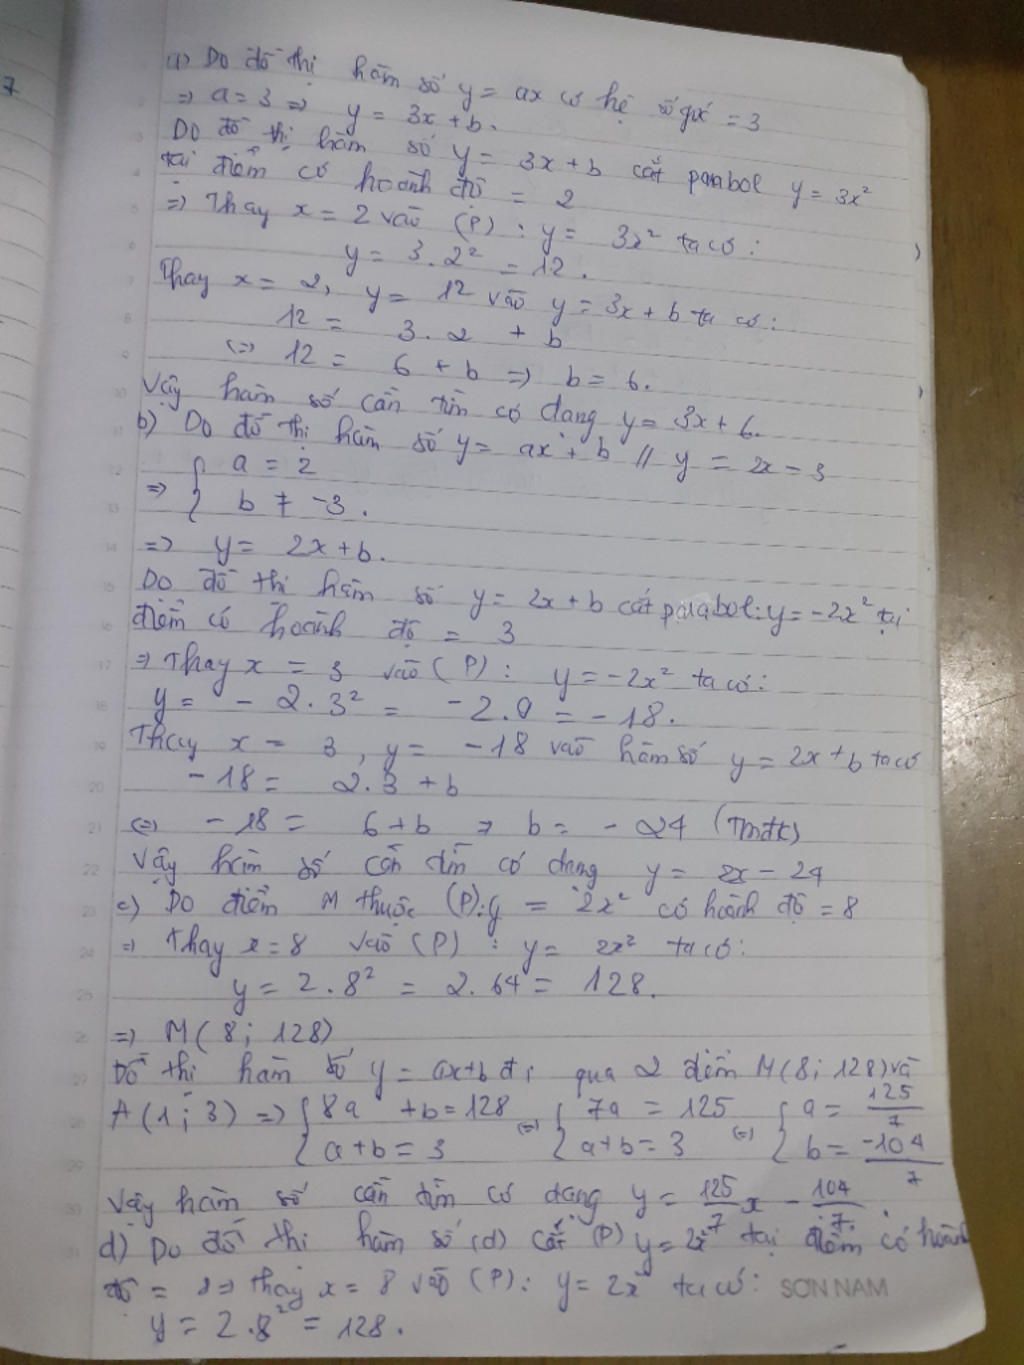 7
a) Do đồ thị hàm số y = ax có hệ số góc = 3
=> a = 3 => y = 3x + b.
Do đồ thị hàm số y = 3x + b cắt parabol y = 3x²
tại điểm có hoành độ = 2
=> Thay x = 2 vào (P) : y = 3x² ta có :
y = 3.2² = 12.
Thay x = 2, y = 12 vào y = 3x + b ta có :
12 = 3.2 + b
<=> 12 = 6 + b => b = 6.
Vậy hàm số cần tìm có dạng y = 3x + 6.
b) Do đồ thị hàm số y = ax + b // y = 2x - 3
=> { a = 2
b ≠ -3.
=> y = 2x + b.
Do đồ thị hàm số y = 2x + b cắt parabol : y = -2x² tại
điểm có hoành độ = 3
=> Thay x = 3 vào (P) : y = -2x² ta có :
y = - 2.3² = -2.9 = -18.
Thay x = 3, y = -18 vào hàm số y = 2x + b ta có
-18 = 2.3 + b
<=> -18 = 6 + b => b = -24 (Tmđk)
Vậy hàm số cần tìm có dạng y = 2x - 24
c) Do điểm M thuộc (P): y = 2x² có hoành độ = 8
=> Thay x = 8 vào (P) : y = 2x² ta có :
y = 2.8² = 2.64 = 128.
=> M( 8 ; 128)
Đồ thị hàm số y = ax+b đi qua 2 điểm M(8; 128) và
A(1; 3) => { 8a + b = 128 <=> { 7a = 125 <=> { a = 125/7
a + b = 3 a + b = 3 b = -104/7
Vậy hàm số cần tìm có dạng y = 125/7 x - 104/7.
d) Do đồ thị hàm số (d) cắt (P) y = 2x² tại điểm có hoành
độ = 8 => thay x = 8 vào (P) : y = 2x² ta có : SƠN NAM
y = 2.8² = 128.